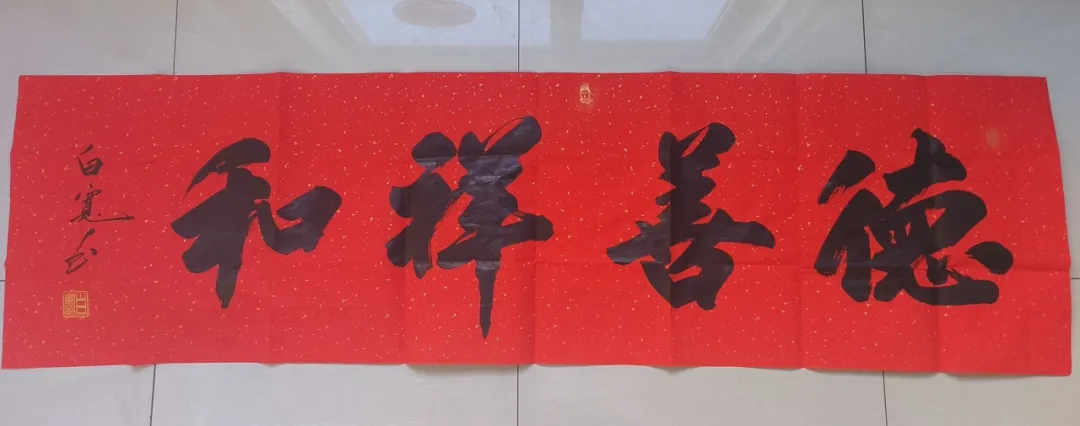 德善祥和
白宽书